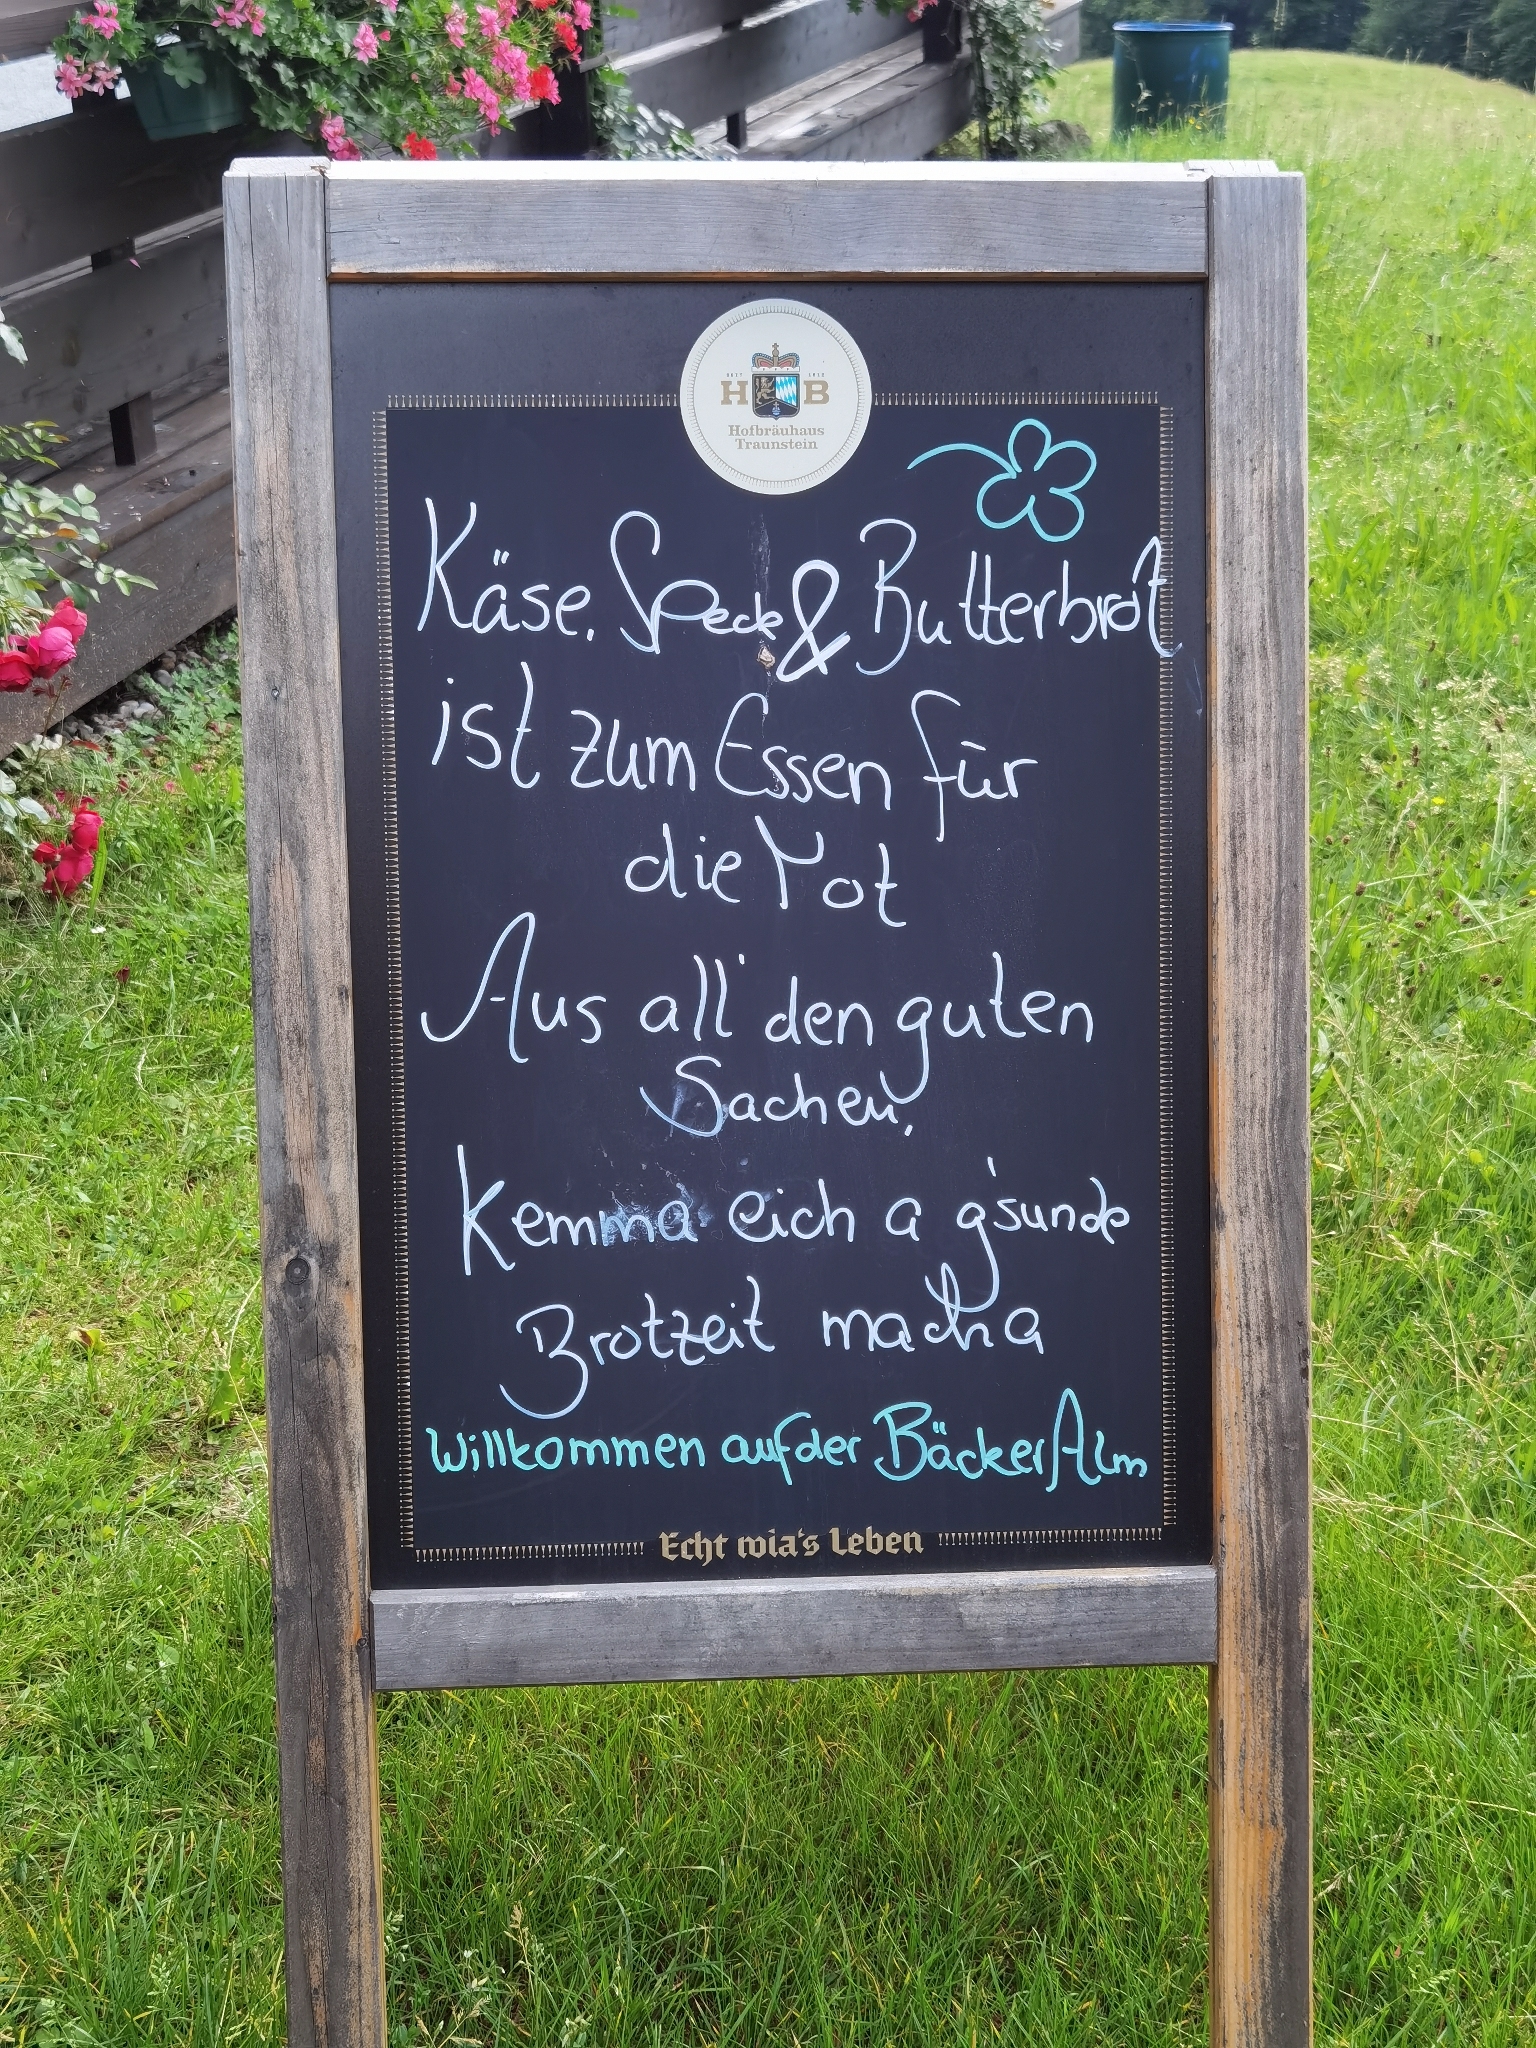 SEIT 1612
H B
Hofbräuhaus
Traunstein
Käse, Speck & Butterbrot
ist zum Essen für
die Not
Aus all' den guten
Sachen,
Kemma eich a g'sunde
Brotzeit macha
Willkommen auf der Bäcker Alm
Echt wia's Leben